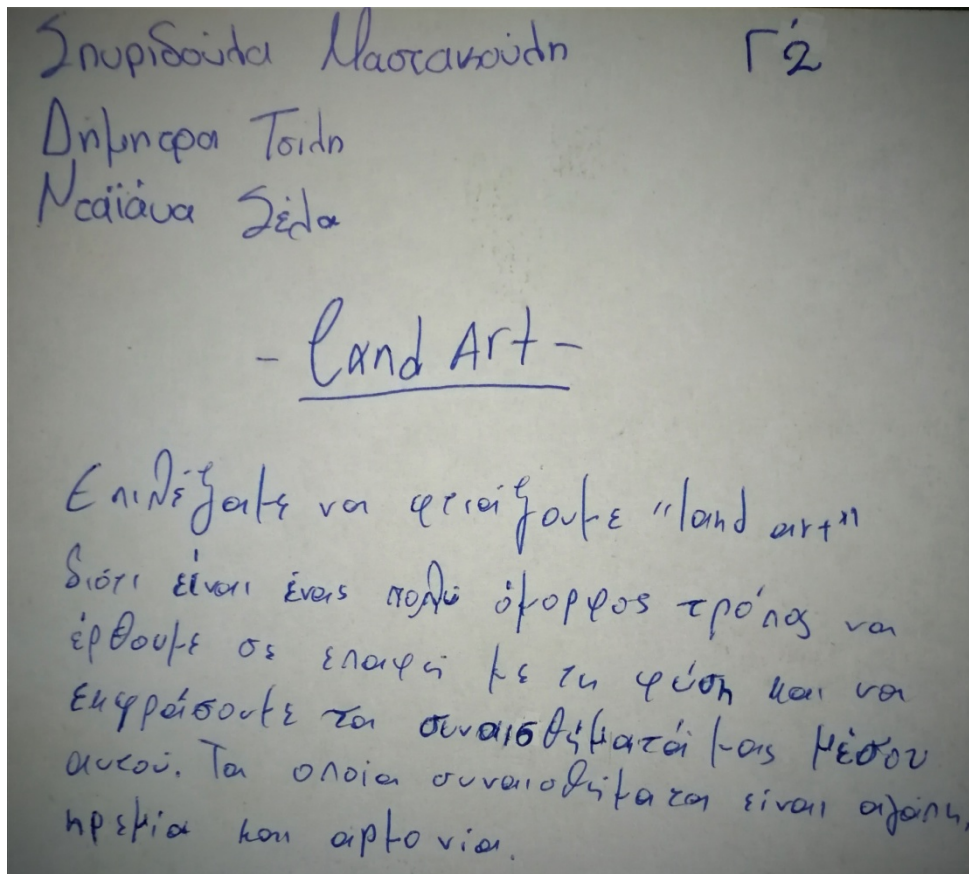 Σπυριδούλα Μαστακούλη Γ'2
Δήμητρα Τσίλη
Νταϊάνα Σέλα
- Land Art -
Επιλέξαμε να φτιάξουμε "land art"
διότι είναι ένας πολύ όμορφος τρόπος να
έρθουμε σε επαφή με τη φύση και να
εκφράσουμε τα συναισθήματά μας μέσου
αυτού. Τα οποία συναισθήματα είναι αγάπη,
ηρεμία και αρμονία.